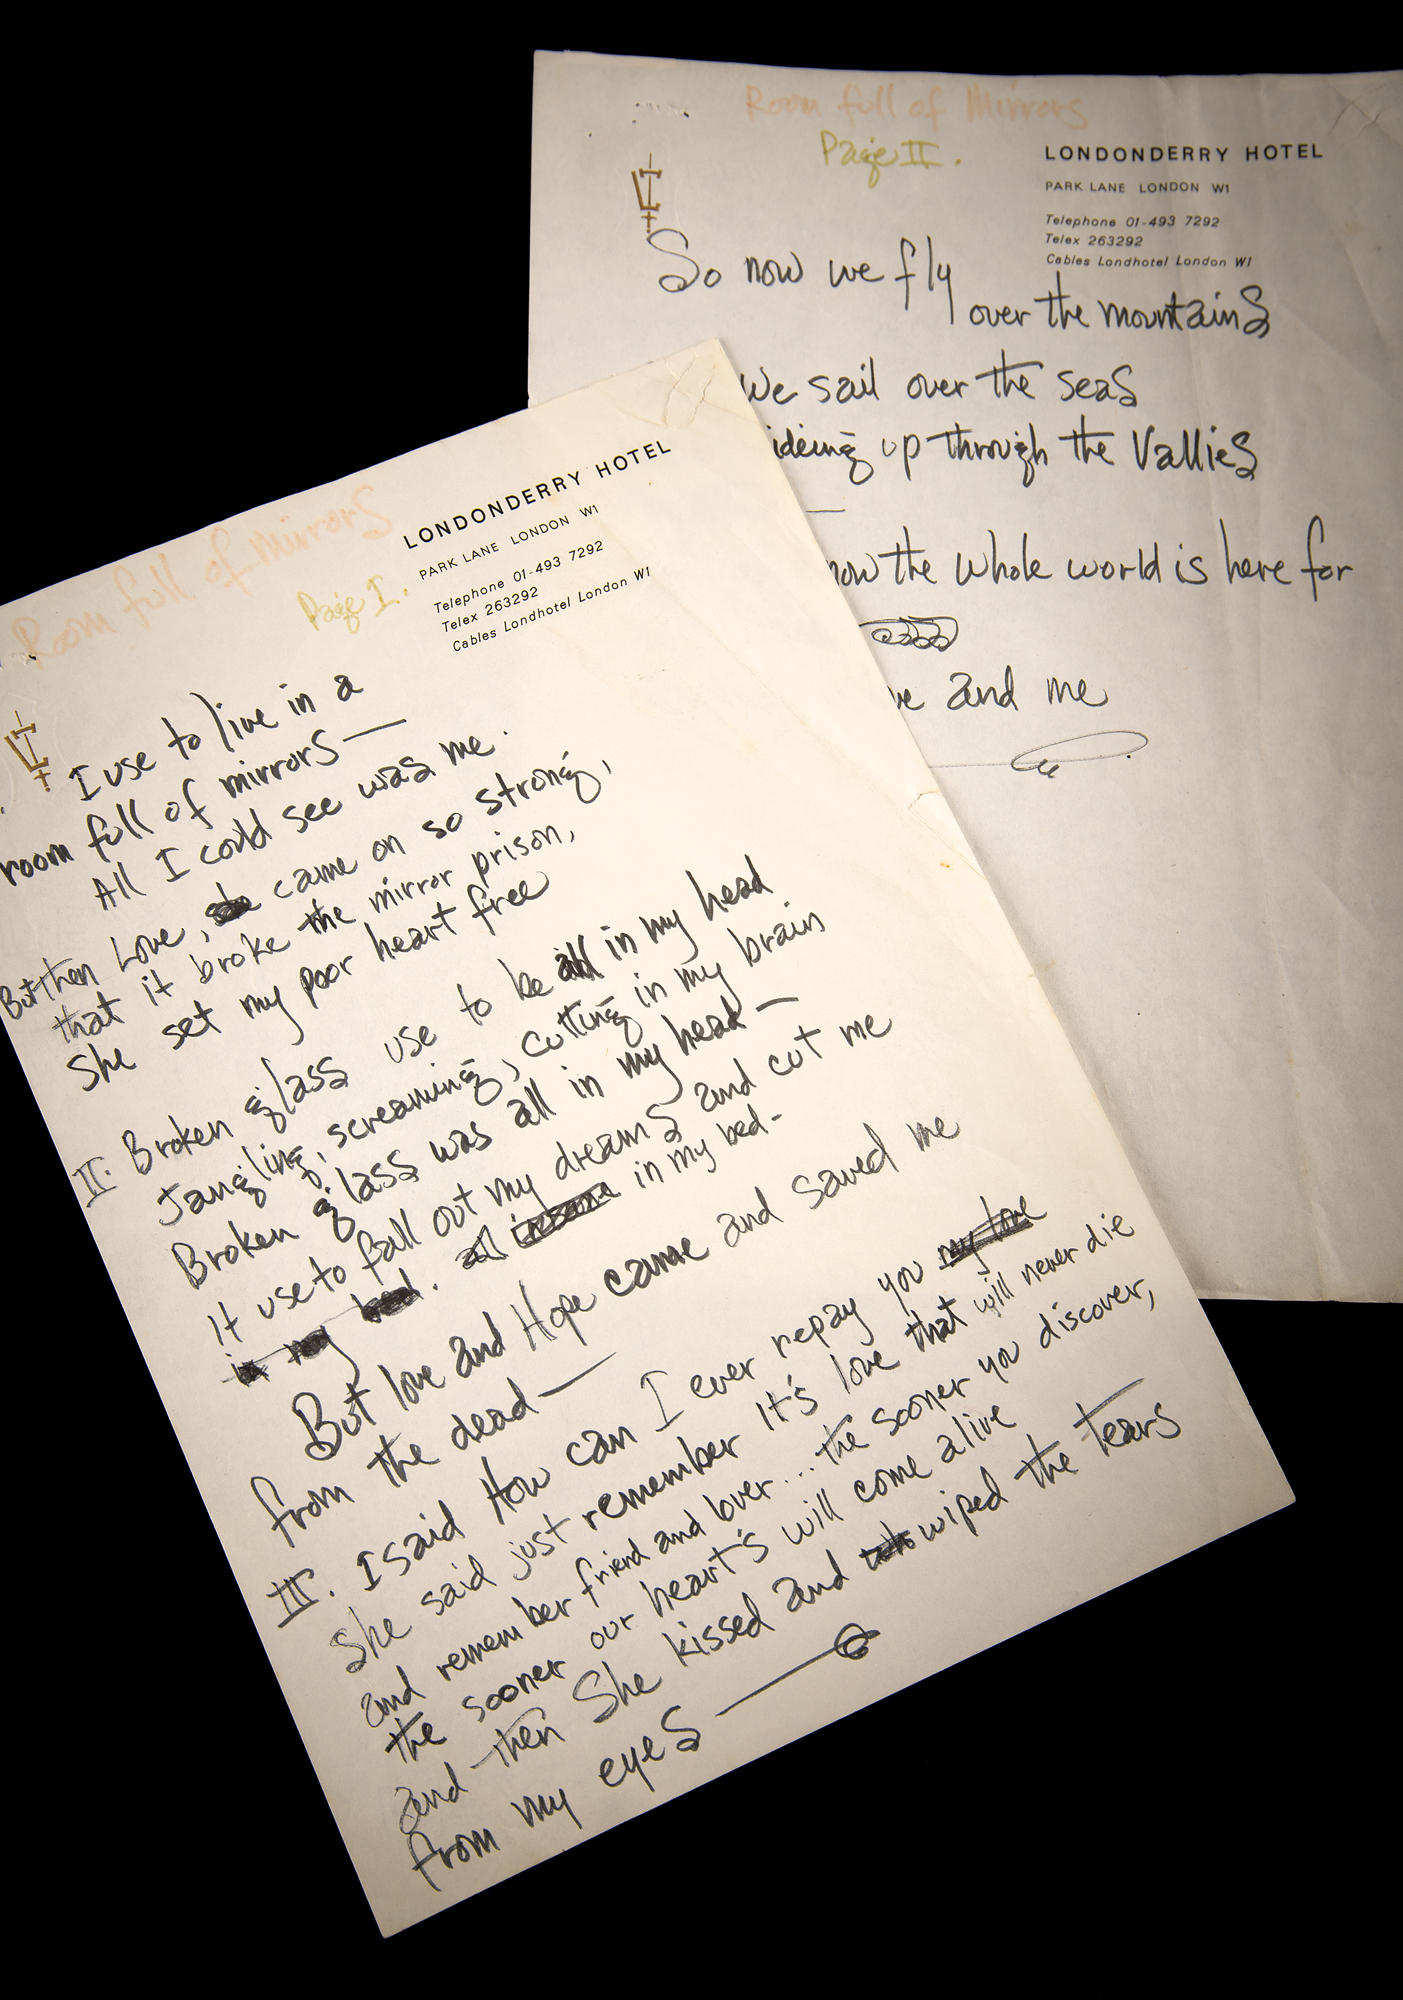 Room full of mirrors
Page I.
LONDONDERRY HOTEL
PARK LANE LONDON W1
Telephone 01-493 7292
Telex 263292
Cables Londhotel London W1
I use to live in a
room full of mirrors—
All I could see was me.
But then Love, she came on so strong,
that it broke the mirror prison,
She set my poor heart free
II. Broken glass use to be all in my head
Jangling, screaming, cutting in my brain
Broken glass was all in my head—
It use to fall out my dreams and cut me
in my bed. all insane in my bed-
But love and Hope came and saved me
from the dead—
III. I said How can I ever repay you my love
She said just remember it's love that will never die
and remember friend and lover... the sooner you discover,
the sooner our heart's will come alive
and then She kissed and wiped the tears
from my eyes
Room full of Mirrors
Page II.
LONDONDERRY HOTEL
PARK LANE LONDON W1
Telephone 01-493 7292
Telex 263292
Cables Londhotel London W1
So now we fly
over the mountains
We sail over the seas
ideing up through the Vallies
now the whole world is here for
and me